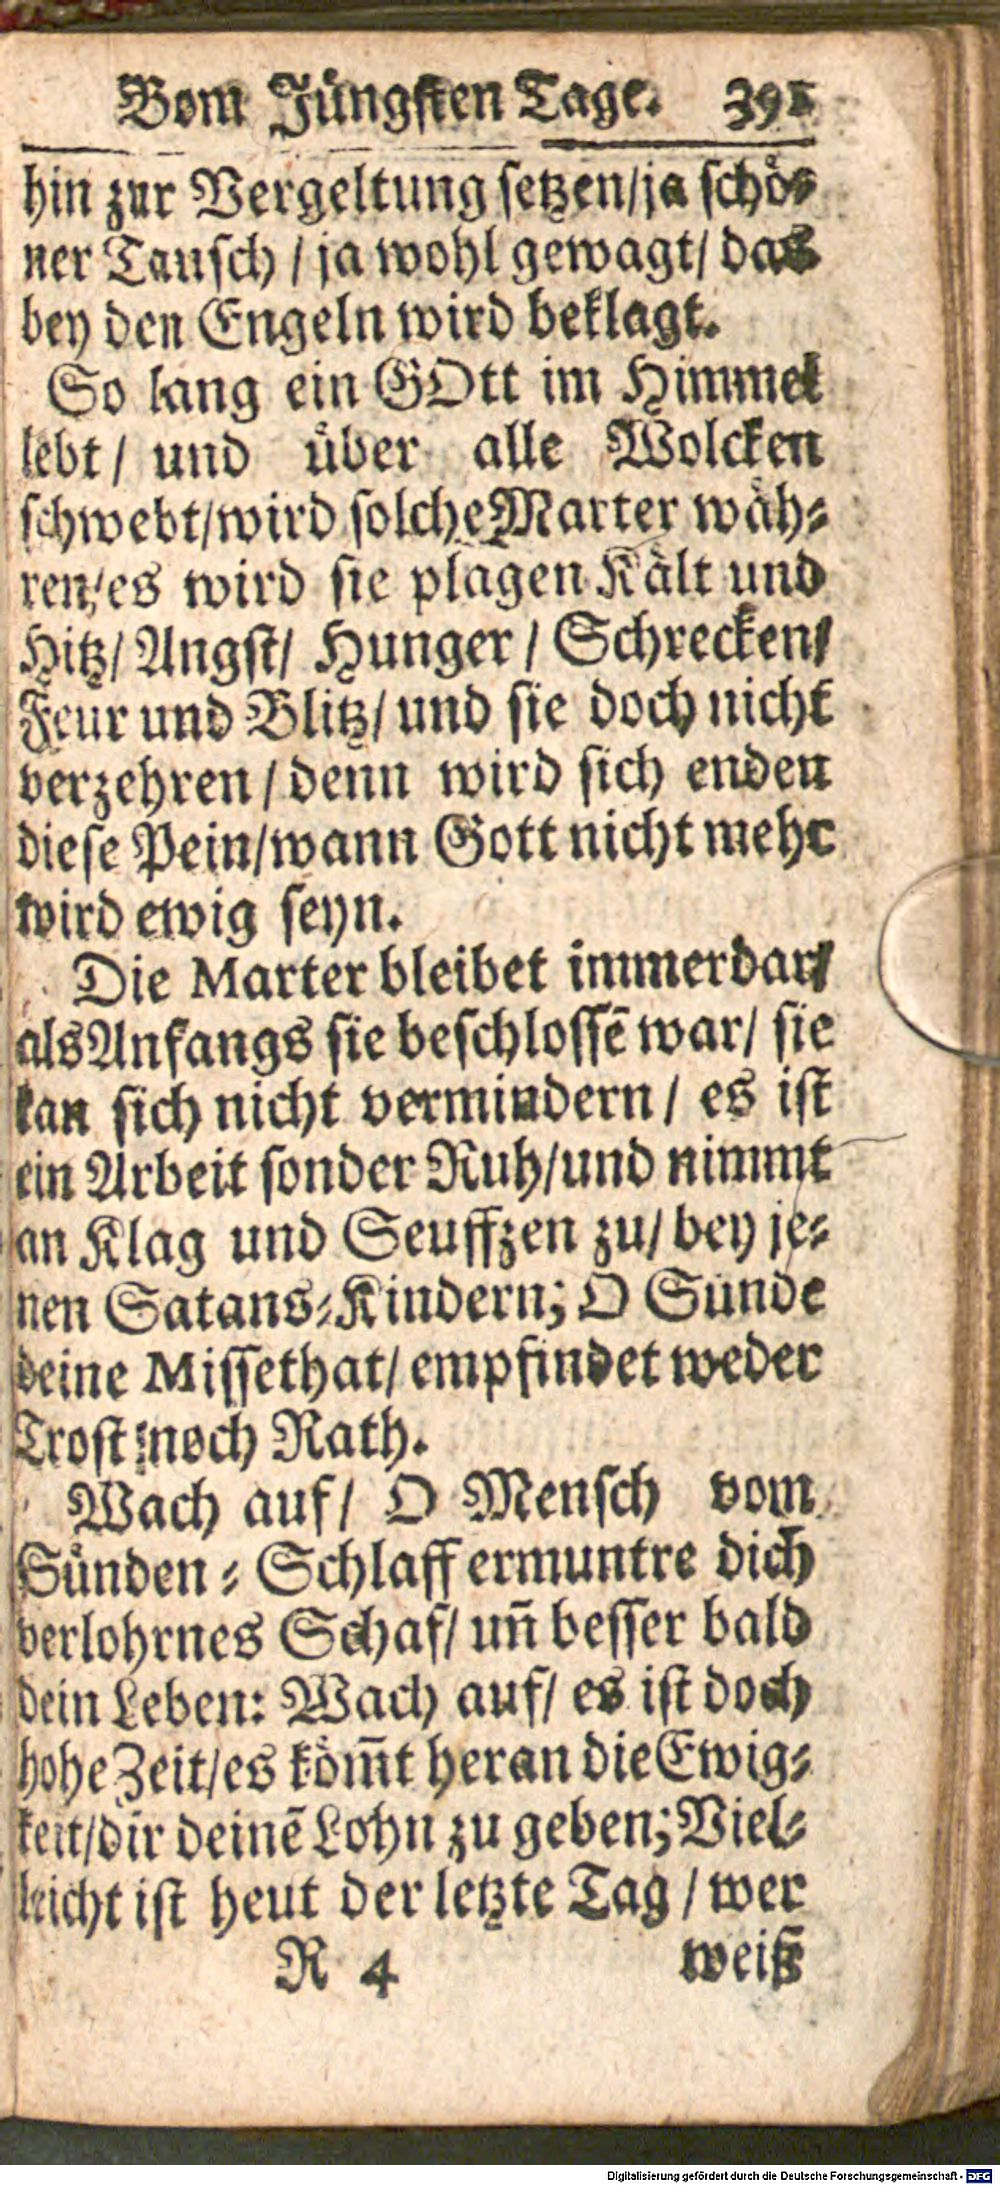 Vom Jüngsten Tage. 391
hin zur Vergeltung setzen/ja schö-
ner Tausch / ja wohl gewagt/ das
bey den Engeln wird beklagt.
So lang ein GOtt im Himmel
lebt / und über alle Wolcken
schwebt/wird solche Marter wäh-
ren/es wird sie plagen Kält und
Hitz/ Angst/ Hunger / Schrecken/
Feur und Blitz/ und sie doch nicht
verzehren / denn wird sich enden
diese Pein/wann Gott nicht mehr
wird ewig seyn.
Die Marter bleibet immerdar/
als Anfangs sie beschlossē war/ sie
kan sich nicht vermindern / es ist
ein Arbeit sonder Ruh/und nimmt
an Klag und Seuffzen zu/ bey je-
nen Satans-Kindern; O Sünde
deine Missethat/ empfindet weder
Trost noch Rath.
Wach auf/ O Mensch vom
Sünden - Schlaff ermuntre dich
verlohrnes Schaf/ un̄ besser bald
dein Leben: Wach auf/ es ist doch
hohe Zeit/es köm̄t heran die Ewig-
keit/dir deinē Lohn zu geben; Viel-
leicht ist heut der letzte Tag / wer
R 4 weiß
Digitalisierung gefördert durch die Deutsche Forschungsgemeinschaft - DFG